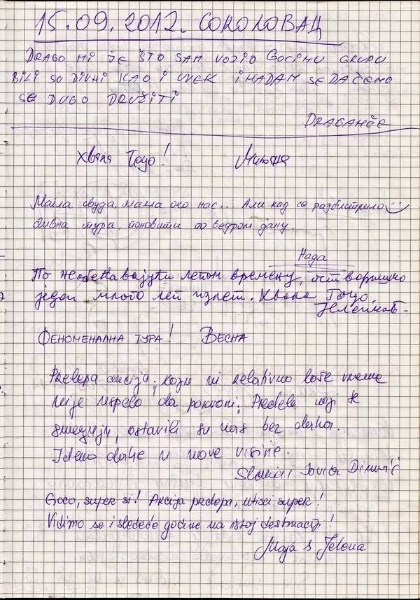 15.09.2012. СОКОЛОВАЦ
DRAGO MI JE ŠTO SAM VOZIO GOCINU GRUPU
BILI SU DIVNI KAO I UVEK I NADAM SE DA ĆEMO
SE DUGO DRUŽITI
DRAGANČE
Хвала Гоцо!
Магла свуда, магла око нас... Али кад се разбистрило
Дивна тура, поновити по ведром дану.
Нада
По времену, остварисмо
један много леп излет. Хвала Гоцо,
ФЕНОМЕНАЛНА ТУРА! ВЕСНА
Prelepa akcija, koju ni relativno loše vreme
nije uspelo da pokvari. Predeli koji se
smenjuju, ostavili su nas bez daha.
Idemo dalje u nove visine.
Slavica
Goco, super si! Akcija prelepa, utisci super!
Vidimo se i sledeće godine na istoj destinaciji!
Maja i Jelena